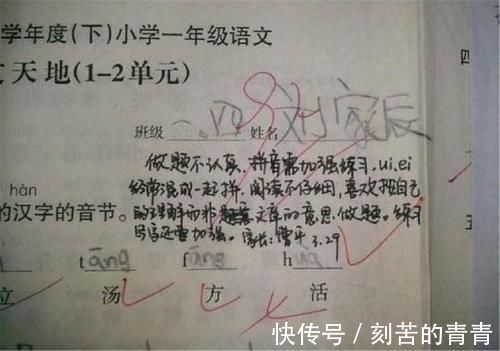 学年度(下)小学一年级语文
天地(1-2单元)
班级 一.四 姓名 刘家辰
做题不认真,拼音需加强练习,ui.ei
经常混成一起拼,阅读不仔细,喜欢把自己
hàn
的汉字的音节。
的理解而非题文章的意思做题。练习
写还需加强。家长:曹平 3.29
tāng f h
立 汤 方 活
四
五
快传号/刻苦的青青